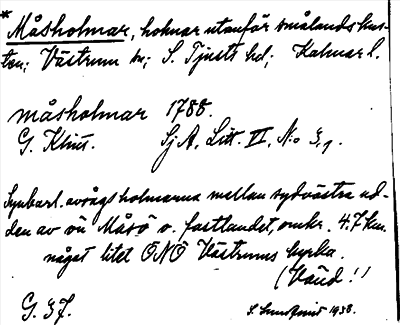 * Måsholmar, holmar utanför smålandskus-
ten; Västrum sn; S. Tjusts hd; Kalmar l.
måsholmar 1788.
G. Klint. SjA, Litt. VI, No 3,9.
Synbarl. avsågs holmarna mellan sydvästra ud-
den av ön Måsö o. fastlandet, omkr. 4.7 km.
något litet ONÖ Västrums kyrka.
(Vänd!)
G. 37. S. Lundquist 1938.